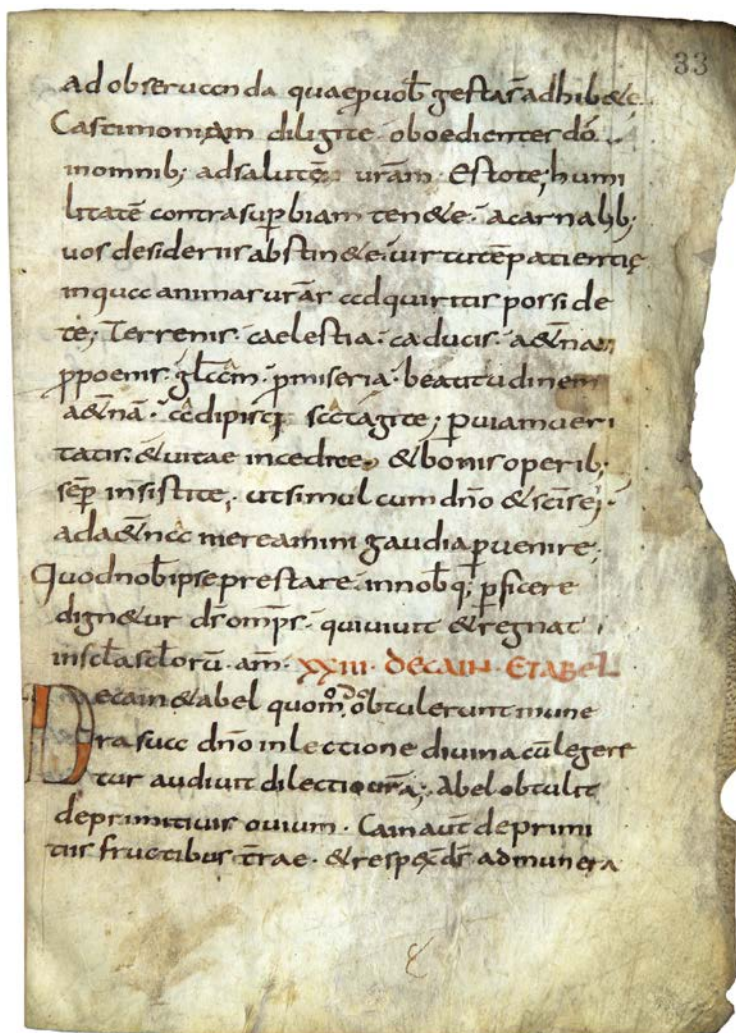 33
ad observanda quae ꝓ vob̄ gestař adhib&e
Castimoniam diligite · oboedienter dō
in omnib; ad salutē urām · Estote; humi
litatē contra sup̱biam ten&e · a carnalib;
vos desideriis abstin&e · virtutē patientię
in qua animas urās adquiritis posside
te; Terrenis · caelestia · caducis · a&̄na
p̄ poenis · gl̄am · p̄ miseria · beatitudinem
a&̄nā · adipisci satagite; ꝑ viam veri
tatis · & vitae incedite · & bonis operib;
sēp insistite; ut simul cum dn̄o & sc̄is ei·
ad a&̄na mereamini gaudia ꝑvenire;
Quod nob̄ ipse prestare · in nob̄q; ꝑficere
dign&ur ds̄ om̄ps · qui vivit & regnat
in sc̄la sc̄lorū · am̄ · XXIII · DE CAIN · ET ABEL
De cain & abel quom̊do obtulerunt mune
ra sua dn̄o in lectione divina cū legere
tur audivit dilectio urā; Abel obtulit
de primitivis ovium · Cain aut̄ de primi
tiis fructibus t̄rae · & respex̄ ds̄ ad munera